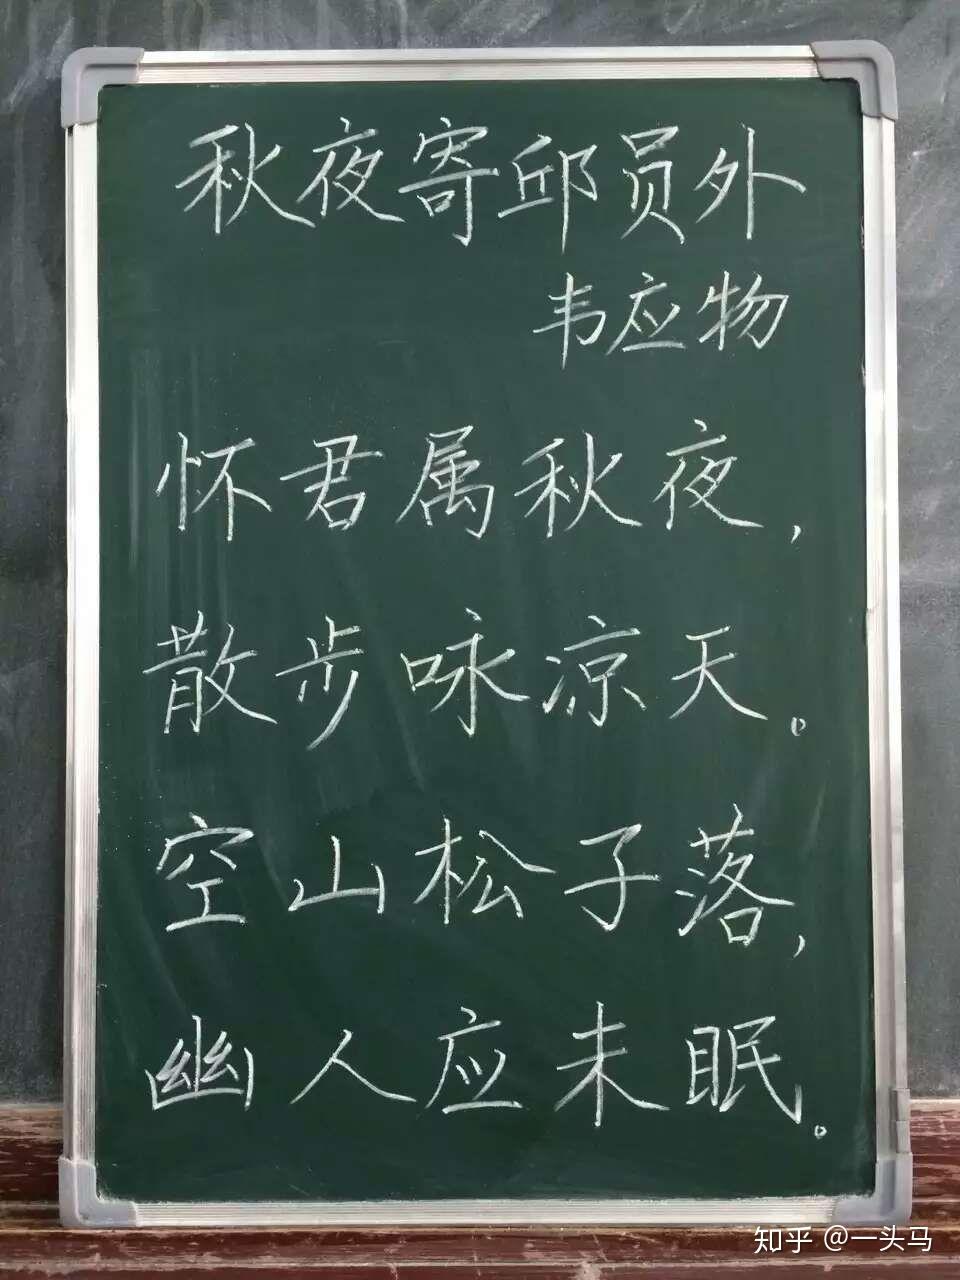 秋夜寄邱员外
韦应物
怀君属秋夜，
散步咏凉天。
空山松子落，
幽人应未眠。
知乎 @一头马